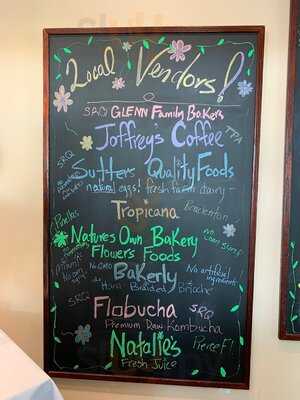 Local Vendors!
SRQ GLENN Family Bakers
Joffrey's Coffee TPA
SRQ Sutter's Quality Foods
natural eggs! fresh farm dairy
Tropicana Bradenton!
Pinellas
Natures Own Bakery
Flowers Foods
No corn syrup
No GMO
Bakerly No artificial ingredients!
Hand Braided Brioche
SRQ
Flobucha SRQ
Premium Raw Kombucha
Natalie's Pierce!
Fresh Juice